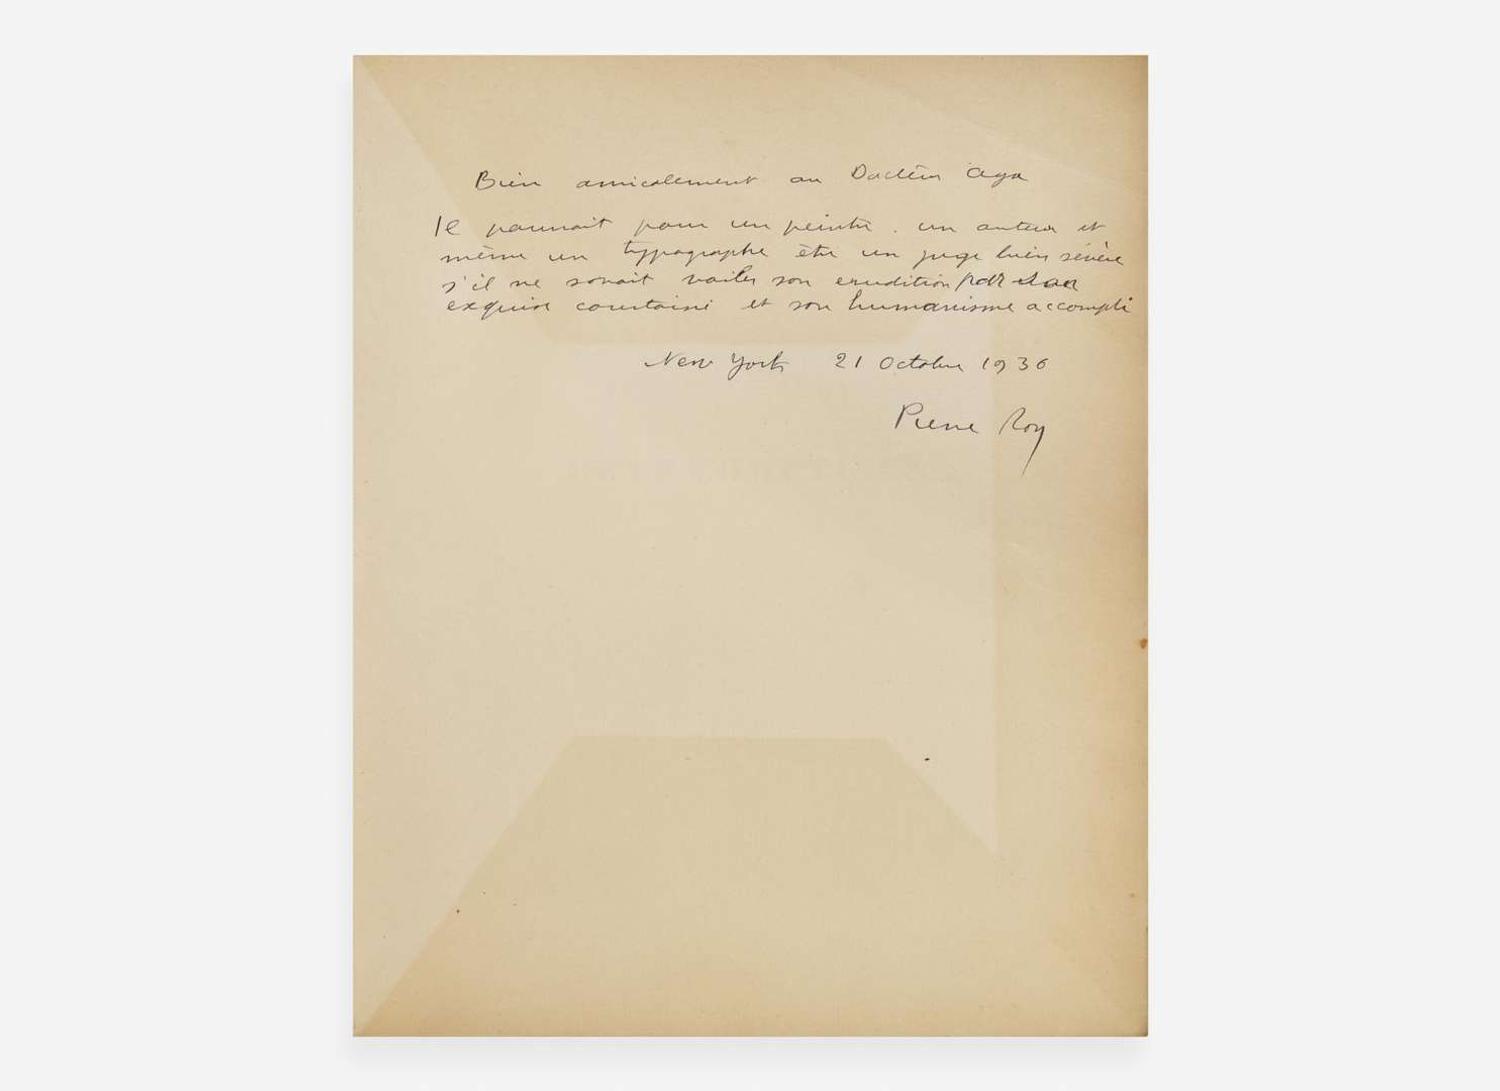 Bien amicalement au Docteur Aga
Il pourrait pour un peintre, un auteur et
même un typographe être un juge bien sévère
s'il ne savait voiler son erudition par son
exquise courtoisie et son humanisme accompli
New York 21 Octobre 1936
Pierre Roy